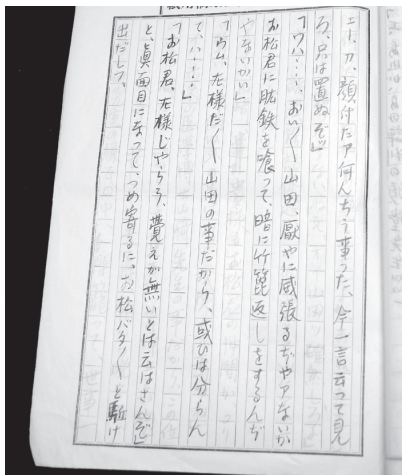 エー、カ、顔付たア何んちう事つた、今一言云つて見
ろ、只は置ぬぞ」
「ワハ‥‥、おい〳〵山田、厭やに威張るぢやアないか
お松君に肱鉄を喰つて、暗に竹箆返しをするんぢ
やないかい」
「ウム、左様だ〳〵山田の事だから、或ひは分らん
て、ハ‥‥‥」
「お松君、左様じやらう、覚えが無いとは云はさんぞ」
と、眞面目になつて、つめ寄るに、お松バタ〳〵と駈け
出だして、